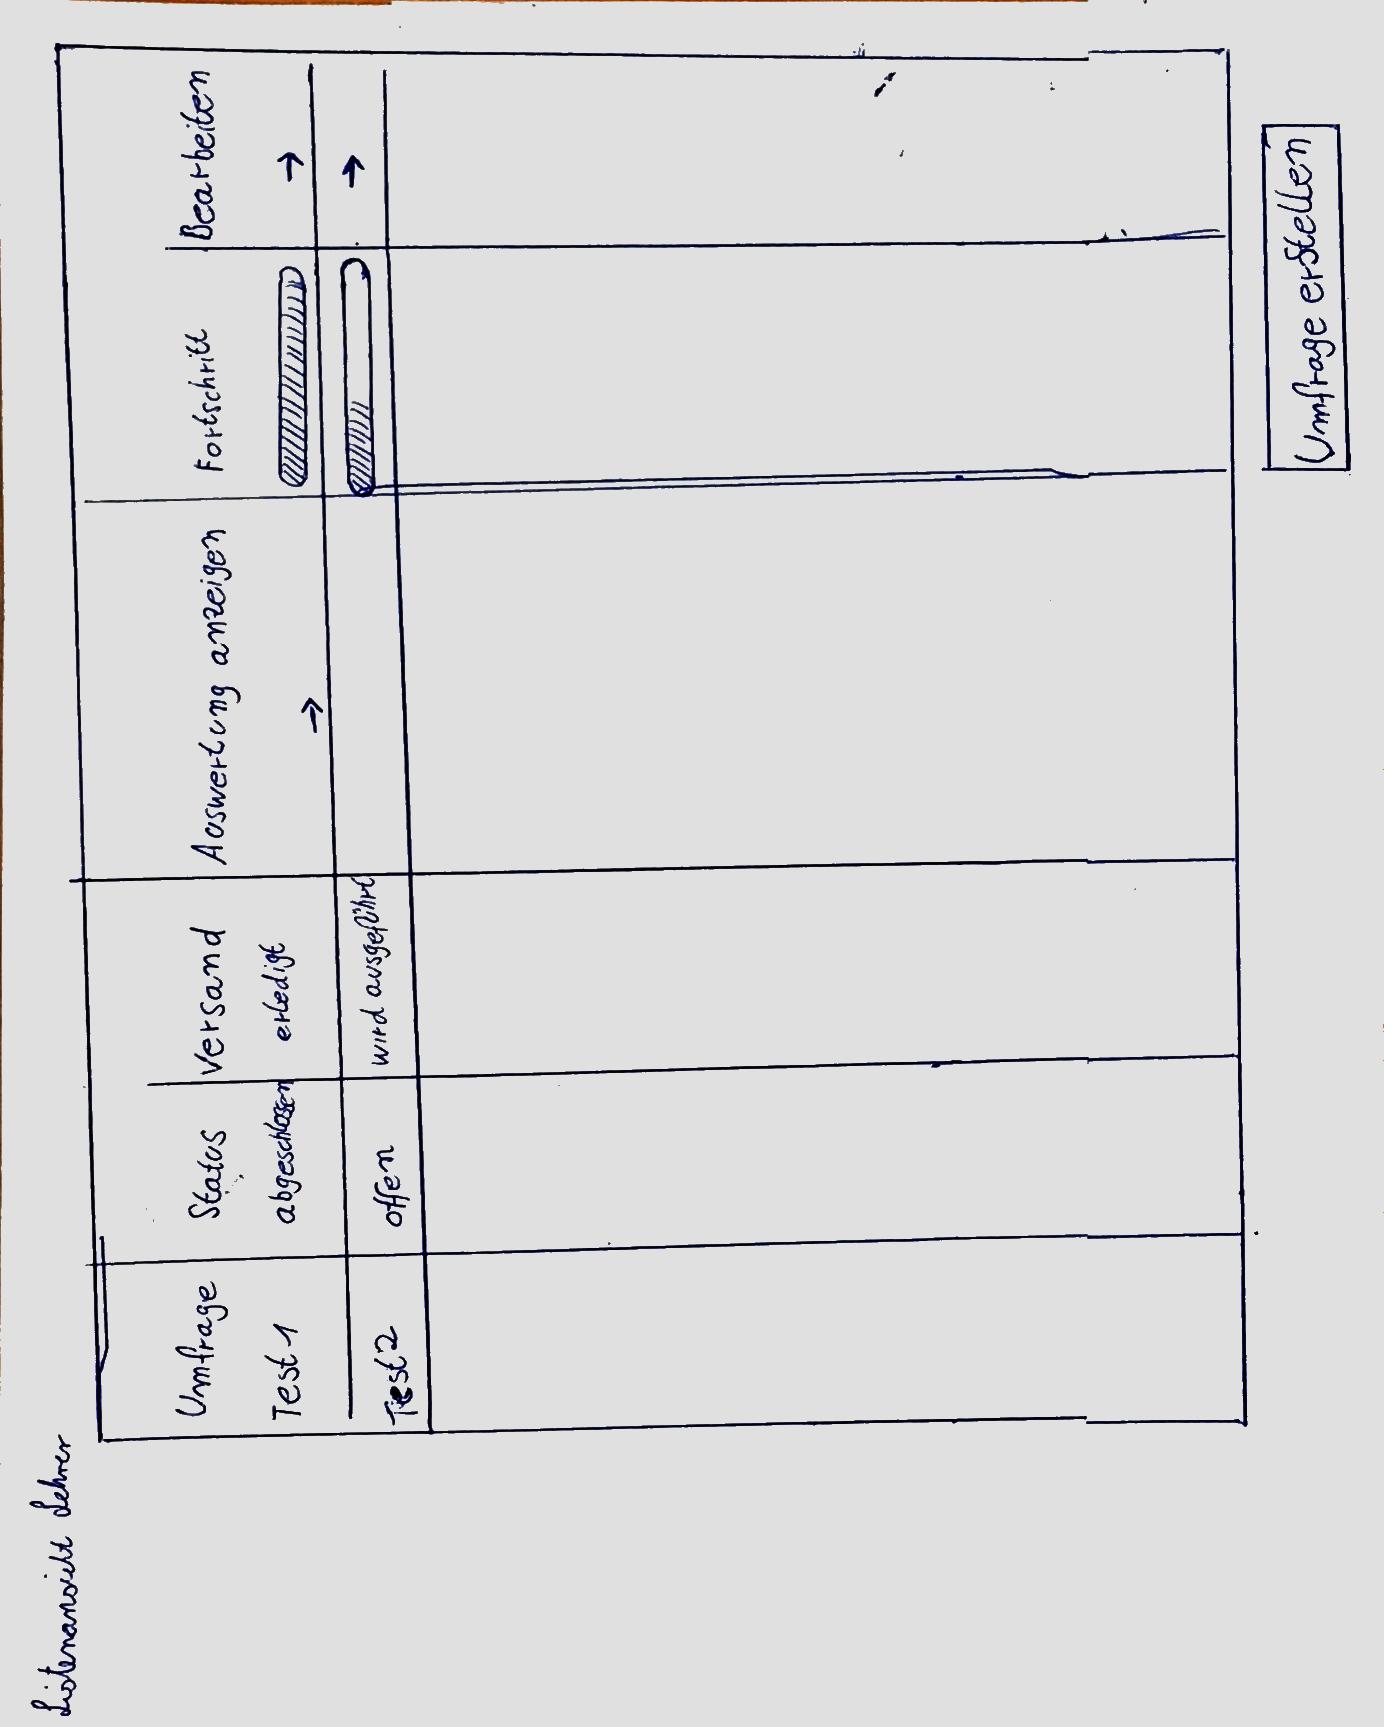 Listenansicht Lehrer
Umfrage Status Versand Auswertung anzeigen Fortschritt Bearbeiten
Test 1 abgeschlossen erledigt → →
Test 2 offen wird ausgeführt →
Umfrage erstellen